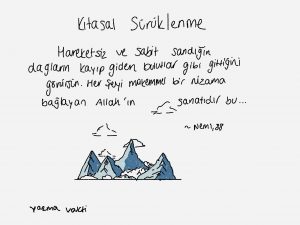 Kıtasal Sürüklenme
Hareketsiz ve sabit sandığın
dağların kayıp giden bulutlar gibi gittiğini
görürsün. Her şeyi mükemmel bir nizama
bağlayan Allah'ın sanatıdır bu...
~ Neml, 88
yazma vakti